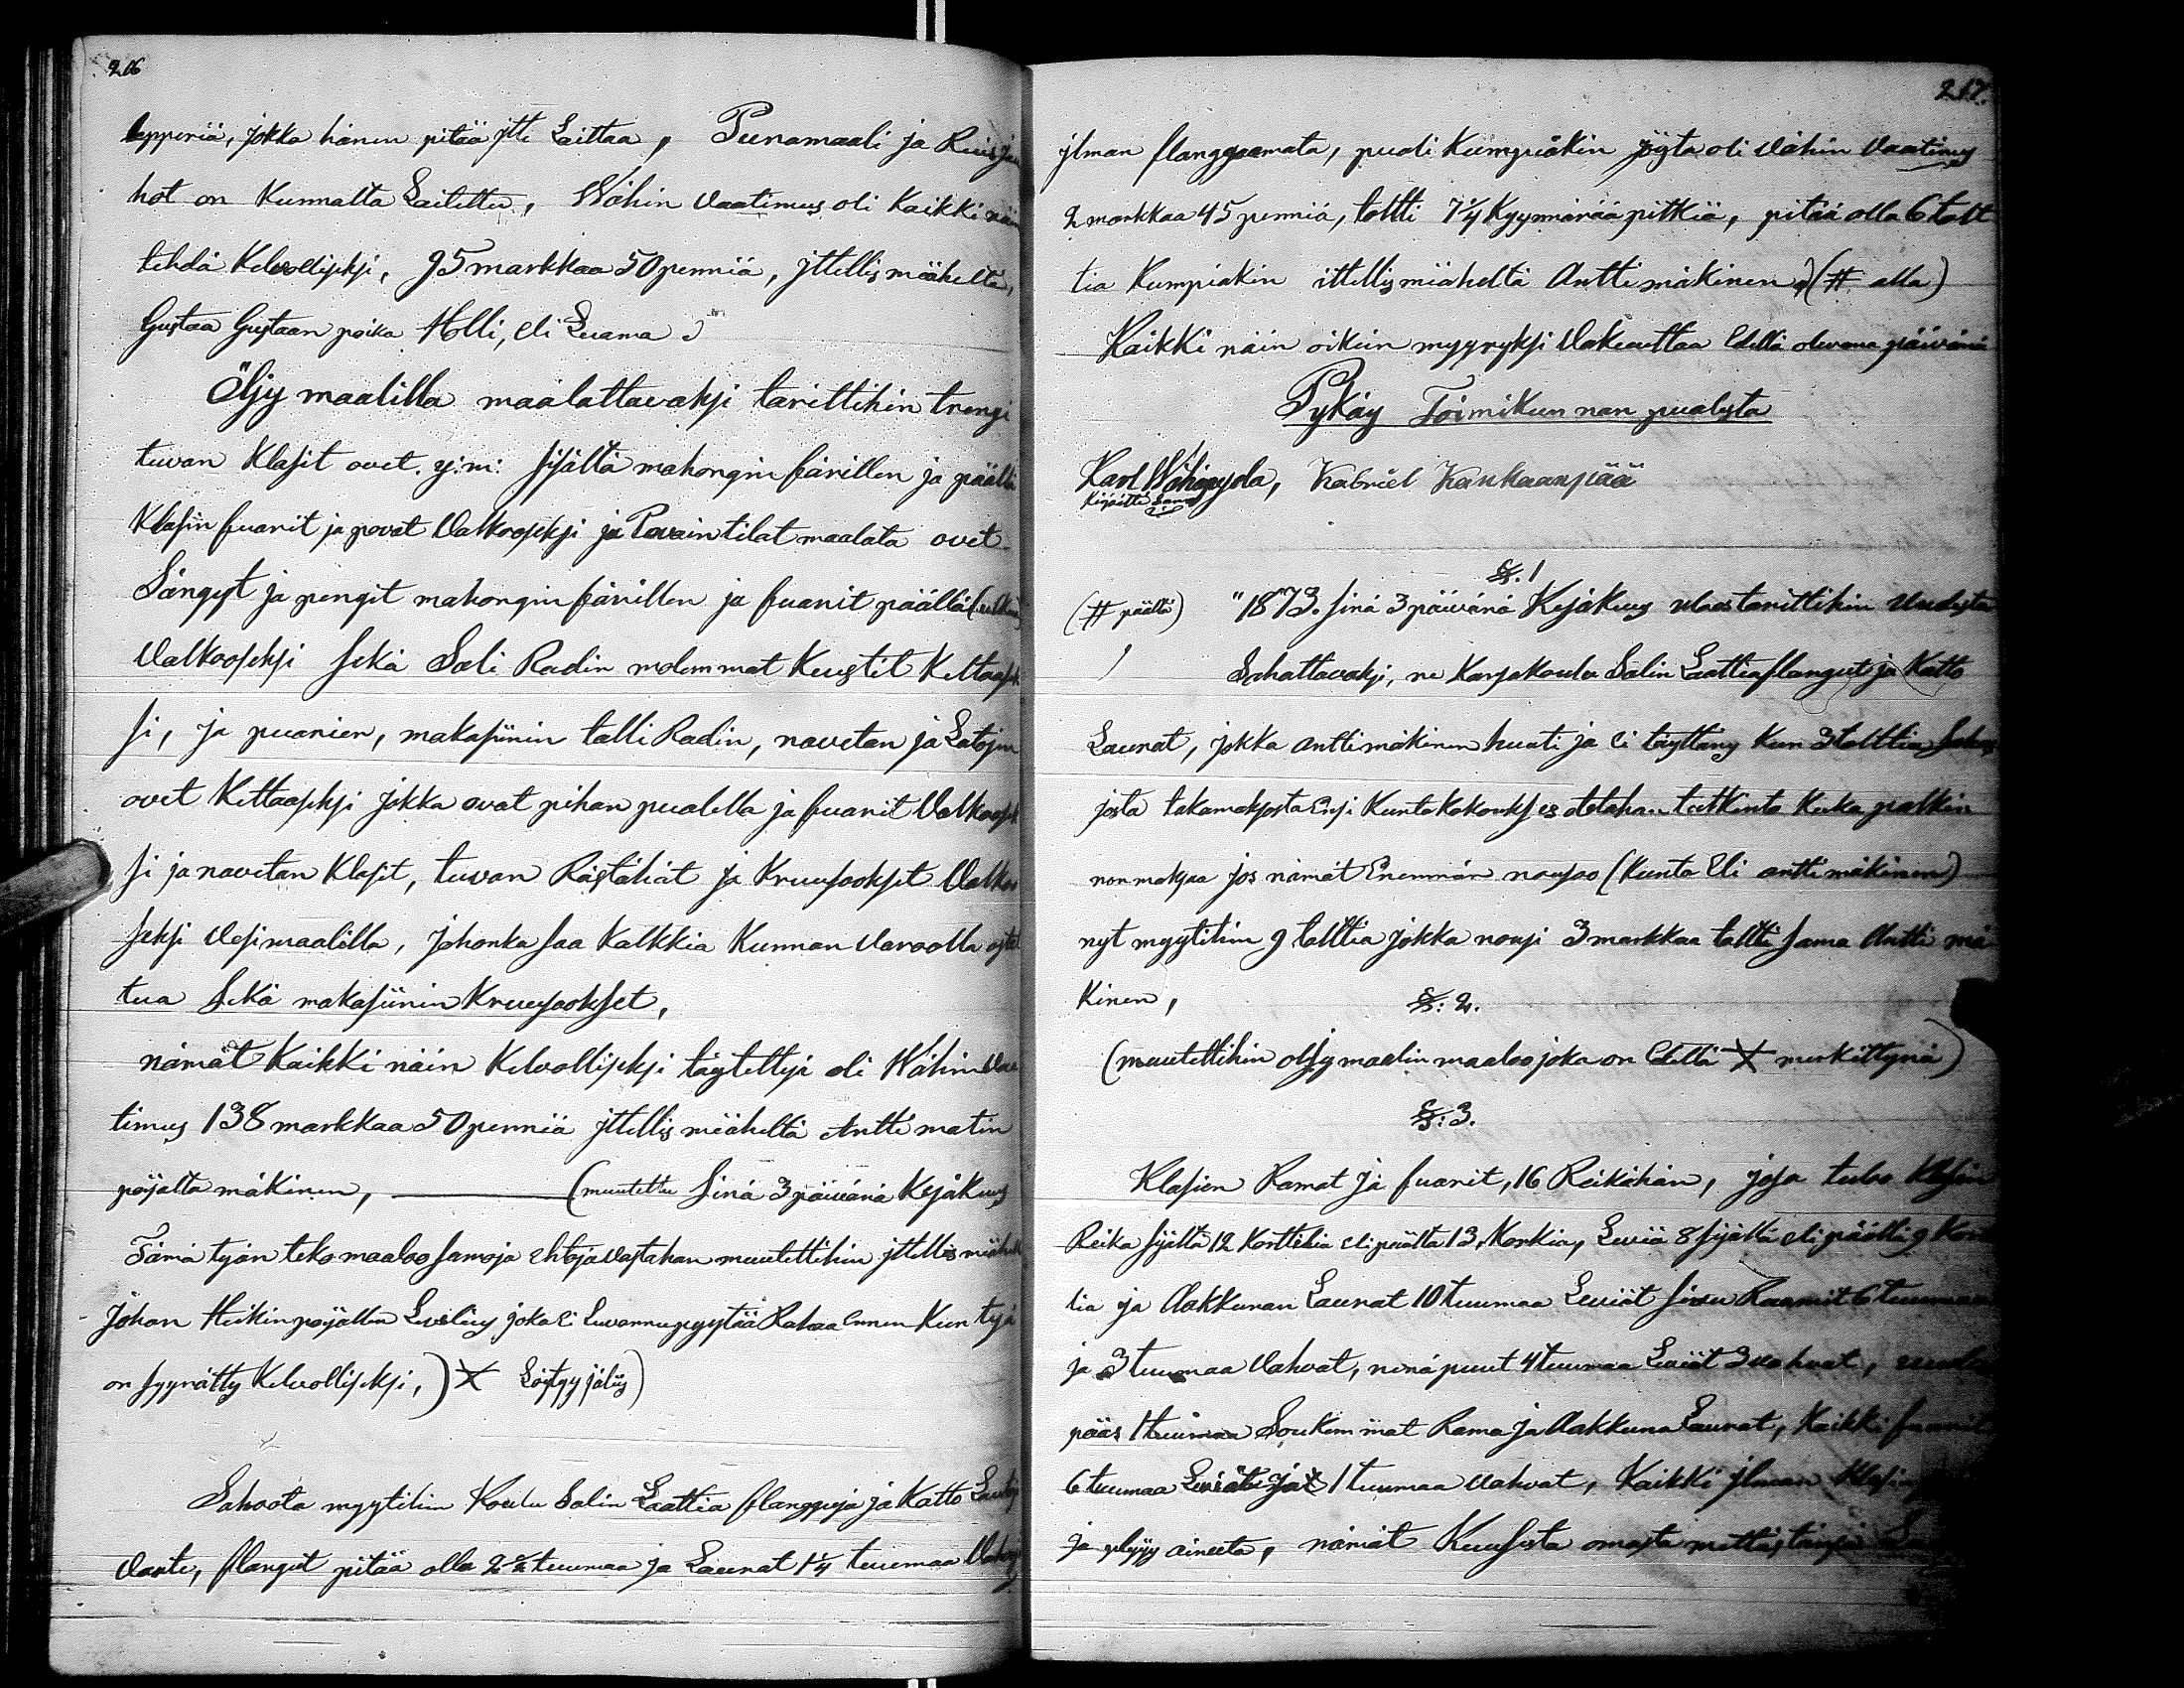 216
lepperiä, jokka hänen pitää jtte Laittaa, Punamaali ja Ruisjau
hot on Kunnalta Laitettu, Wähin vaatimus oli Kaikki näin
tehdä Kelvolliseksi, 95 markkaa 50 penniä, jttellis mieheltä,
Gustaa Gustaan poika Holli, eli Luama
Öljy maalilla maalattavaksi tarittihin trengi
tuvan Klasit ovet. y.m: sisältä mahongin färillen ja päältä
Klasin fuarit ja povat Valkooseksi ja Povaintilat maalata ovet
Sängyt ja pengit mahongin färillen ja fuarit päältä
Valkooseksi sekä Sali Radin molemmat Kuistit Keltaasek
si, ja puarien, makasiinin talli Radin, navetan ja Latojen
ovet Keltaaseksi jokka ovat pihan pualella ja fuarit Valkoosek
si ja navetan Klasit, tuvan Rästähät ja Kruusookset Valkoo
seksi Vesimaalilla, johonka saa Kalkkia Kunnan varoolla oste
tua sekä makasiinin Kruusookset,
nämät Kaikki näin Kelvolliseksi täytettyä oli Wähin vaa
timus 138 markkaa 50 penniä jttellis mieheltä Antti matin
pojalta mäkinen, (muutettu Sinä 3 päivänä Kesäkuus
Tämä työn teko maaloo samoja ehtoja vastahan muutettihin jttellis miehel
Johan Heikinpojallen Levelius joka ei Luvannu pyytää Rahaa ennen Kun työ
on syynätty Kelvolliseksi,) X Löytyy jäliis)
Sahoota myytihin Koulu Salin Laattia flangguja ja Katto Lautoja
Varte, flangut pitää olla 2 1/2 tuumaa ja Laurat 1 1/4 tuumaa Vahvoja
217.
jlman flanggaamata, puali Kumpiakin jöista oli vähin Vaatimus
2 markkaa 45 penniä, toltti 7 1/4 Kyynärää pitkiä, pitää olla 6 tolt
tia Kumpiakin ittellis mieheltä Antti mäkinen (# alla)
Kaikki näin oikein myyryksi Vakuuttaa Edellä olevana päivänä
Pykäy Toimikunnan pualesta
Karl Wähäpesola, Kabriel Kankaanpää
Kirjoitti Sama
§. 1
(# päältä) "1873. sinä 3 päivänä Kesäkuus ulos tarittihin Uudesta
Sahattavaksi, ne Kansakoulu Salin Laattiaflangut ja Katto
Laurat, jokka Antti mäkinen huuti ja ei täyttäny Kun 3 tolttia
josta takamaksosta Ensi Kuntakokouksses otetahan tutkinto Kuka palkin
non maksaa jos nämät Enemmän nousoo (Kunta Eli antti mäkinen)
nyt myytihin 9 tolttia jokka nousi 3 markkaa toltti sama Antti mä
Kinen,
§: 2.
(muutettihin öljy maalin maaloo joka on Edellä X merkittynä)
§: 3.
Klasien Ramat ja fuarit, 16 Reikähän, josa tuloo Klasin
Reika sisältä 12 Korttelia eli päältä 13 Korkia, Leviä 8 sisältä eli päältä 9 Kort
tia ja Aakkunan Laurat 10 tuumaa Leviät sivu Raamit 6 tuumaa
ja 3 tuumaa Vahvat, nenä puut 4 tuumaa Leviät 3 vahvat,
pääs 1 tuumaa Soukemmat Rama ja Aakkuna Laurat, Kaikki fuarit
6 tuumaa Leviät ja 1 tuumaa vahvat, Kaikki jlman Klasin
ja aineeta, nämät Kuusista omasta mettästänsä